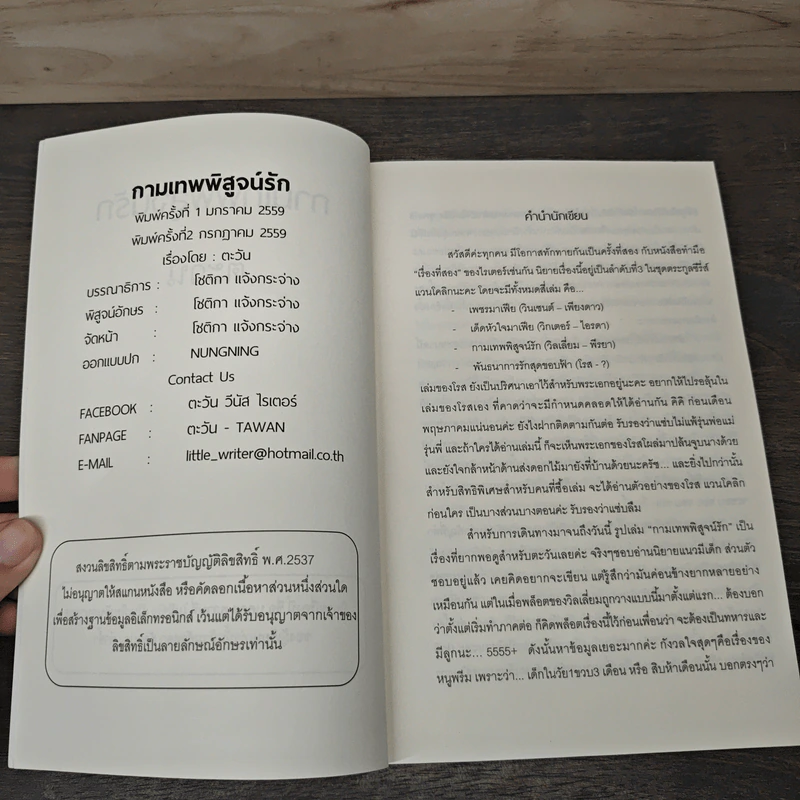 กามเทพพิสูจน์รัก
พิมพ์ครั้งที่ 1 มกราคม 2559
พิมพ์ครั้งที่2 กรกฎาคม 2559
เรื่องโดย : ตะวัน
บรรณาธิการ : โชติกา แจ้งกระจ่าง
พิสูจน์อักษร : โชติกา แจ้งกระจ่าง
จัดหน้า : โชติกา แจ้งกระจ่าง
ออกแบบปก : NUNGNING
Contact Us
FACEBOOK : ตะวัน วีนัส ไรเตอร์
FANPAGE : ตะวัน - TAWAN
E-MAIL : little_writer@hotmail.co.th
สงวนลิขสิทธิ์ตามพระราชบัญญัติลิขสิทธิ์ พ.ศ.2537
ไม่อนุญาตให้สแกนหนังสือ หรือคัดลอกเนื้อหาส่วนหนึ่งส่วนใด
เพื่อสร้างฐานข้อมูลอิเล็กทรอนิกส์ เว้นแต่ได้รับอนุญาตจากเจ้าของ
ลิขสิทธิ์เป็นลายลักษณ์อักษรเท่านั้น
คำนำนักเขียน
สวัสดีค่ะทุกคน มีโอกาสทักทายกันเป็นครั้งที่สอง กับหนังสือทำมือ
"เรื่องที่สอง" ของไรเตอร์เช่นกัน นิยายเรื่องนี้อยู่เป็นลำดับที่3 ในชุดตระกูลซีรี่ส์
แวนโคลิกนะคะ โดยจะมีทั้งหมดสี่เล่ม คือ...
- เพชรมาเฟีย (วินเซนต์ – เพียงดาว)
- เด็ดหัวใจมาเฟีย (วิกเตอร์ – ไอรดา)
- กามเทพพิสูจน์รัก (วิลเลี่ยม – พีรยา)
- พันธนาการรักสุดขอบฟ้า (โรส - ?)
เล่มของโรส ยังเป็นปริศนาเอาไว้สำหรับพระเอกอยู่นะคะ อยากให้โปรลุ้นใน
เล่มของโรสเอง ที่คาดว่าจะมีกำหนดคลอดให้ได้อ่านกัน คิคิ ก่อนเดือน
พฤษภาคมแน่นอนค่ะ ยังไงฝากติดตามกันต่อ รับรองว่าแซ่บไม่แพ้รุ่นพ่อแม่
รุ่นพี่ และถ้าใครได้อ่านเล่มนี้ ก็จะเห็นพระเอกของโรสโผล่มาปล้นจูบนางด้วย
และยังใจกล้าหน้าด้านส่งดอกไม้มายังที่บ้านด้วยนะครัช... และยิ่งไปกว่านั้น
สำหรับสิทธิพิเศษสำหรับคนที่ซื้อเล่ม จะได้อ่านตัวอย่างของโรส แวนโคลิก
ก่อนใคร เป็นบางส่วนบางตอนค่ะ รับรองว่าแซ่บลืม
สำหรับการเดินทางมาจนถึงวันนี้ รูปเล่ม "กามเทพพิสูจน์รัก" เป็น
เรื่องที่ยากพอดูสำหรับตะวันเลยค่ะ จริงๆชอบอ่านนิยายแนวมีเด็ก ส่วนตัว
ชอบอยู่แล้ว เคยคิดอยากจะเขียน แต่รู้สึกว่ามันค่อนข้างยากหลายอย่าง
เหมือนกัน แต่ในเมื่อพล็อตของวิลเลี่ยมถูกวางแบบนี้มาตั้งแต่แรก... ต้องบอก
ว่าตั้งแต่เริ่มทำภาคต่อ ก็คิดพล็อตเรื่องนี้ไว้ก่อนเพื่อนว่า จะต้องเป็นทหารและ
มีลูกนะ... 5555+ ดังนั้นหาข้อมูลเยอะมากค่ะ กังวลใจสุดๆคือเรื่องของ
หนูพรีม เพราะว่า... เด็กในวัย1ขวบ3 เดือน หรือ สิบห้าเดือนนั้น บอกตรงๆว่า